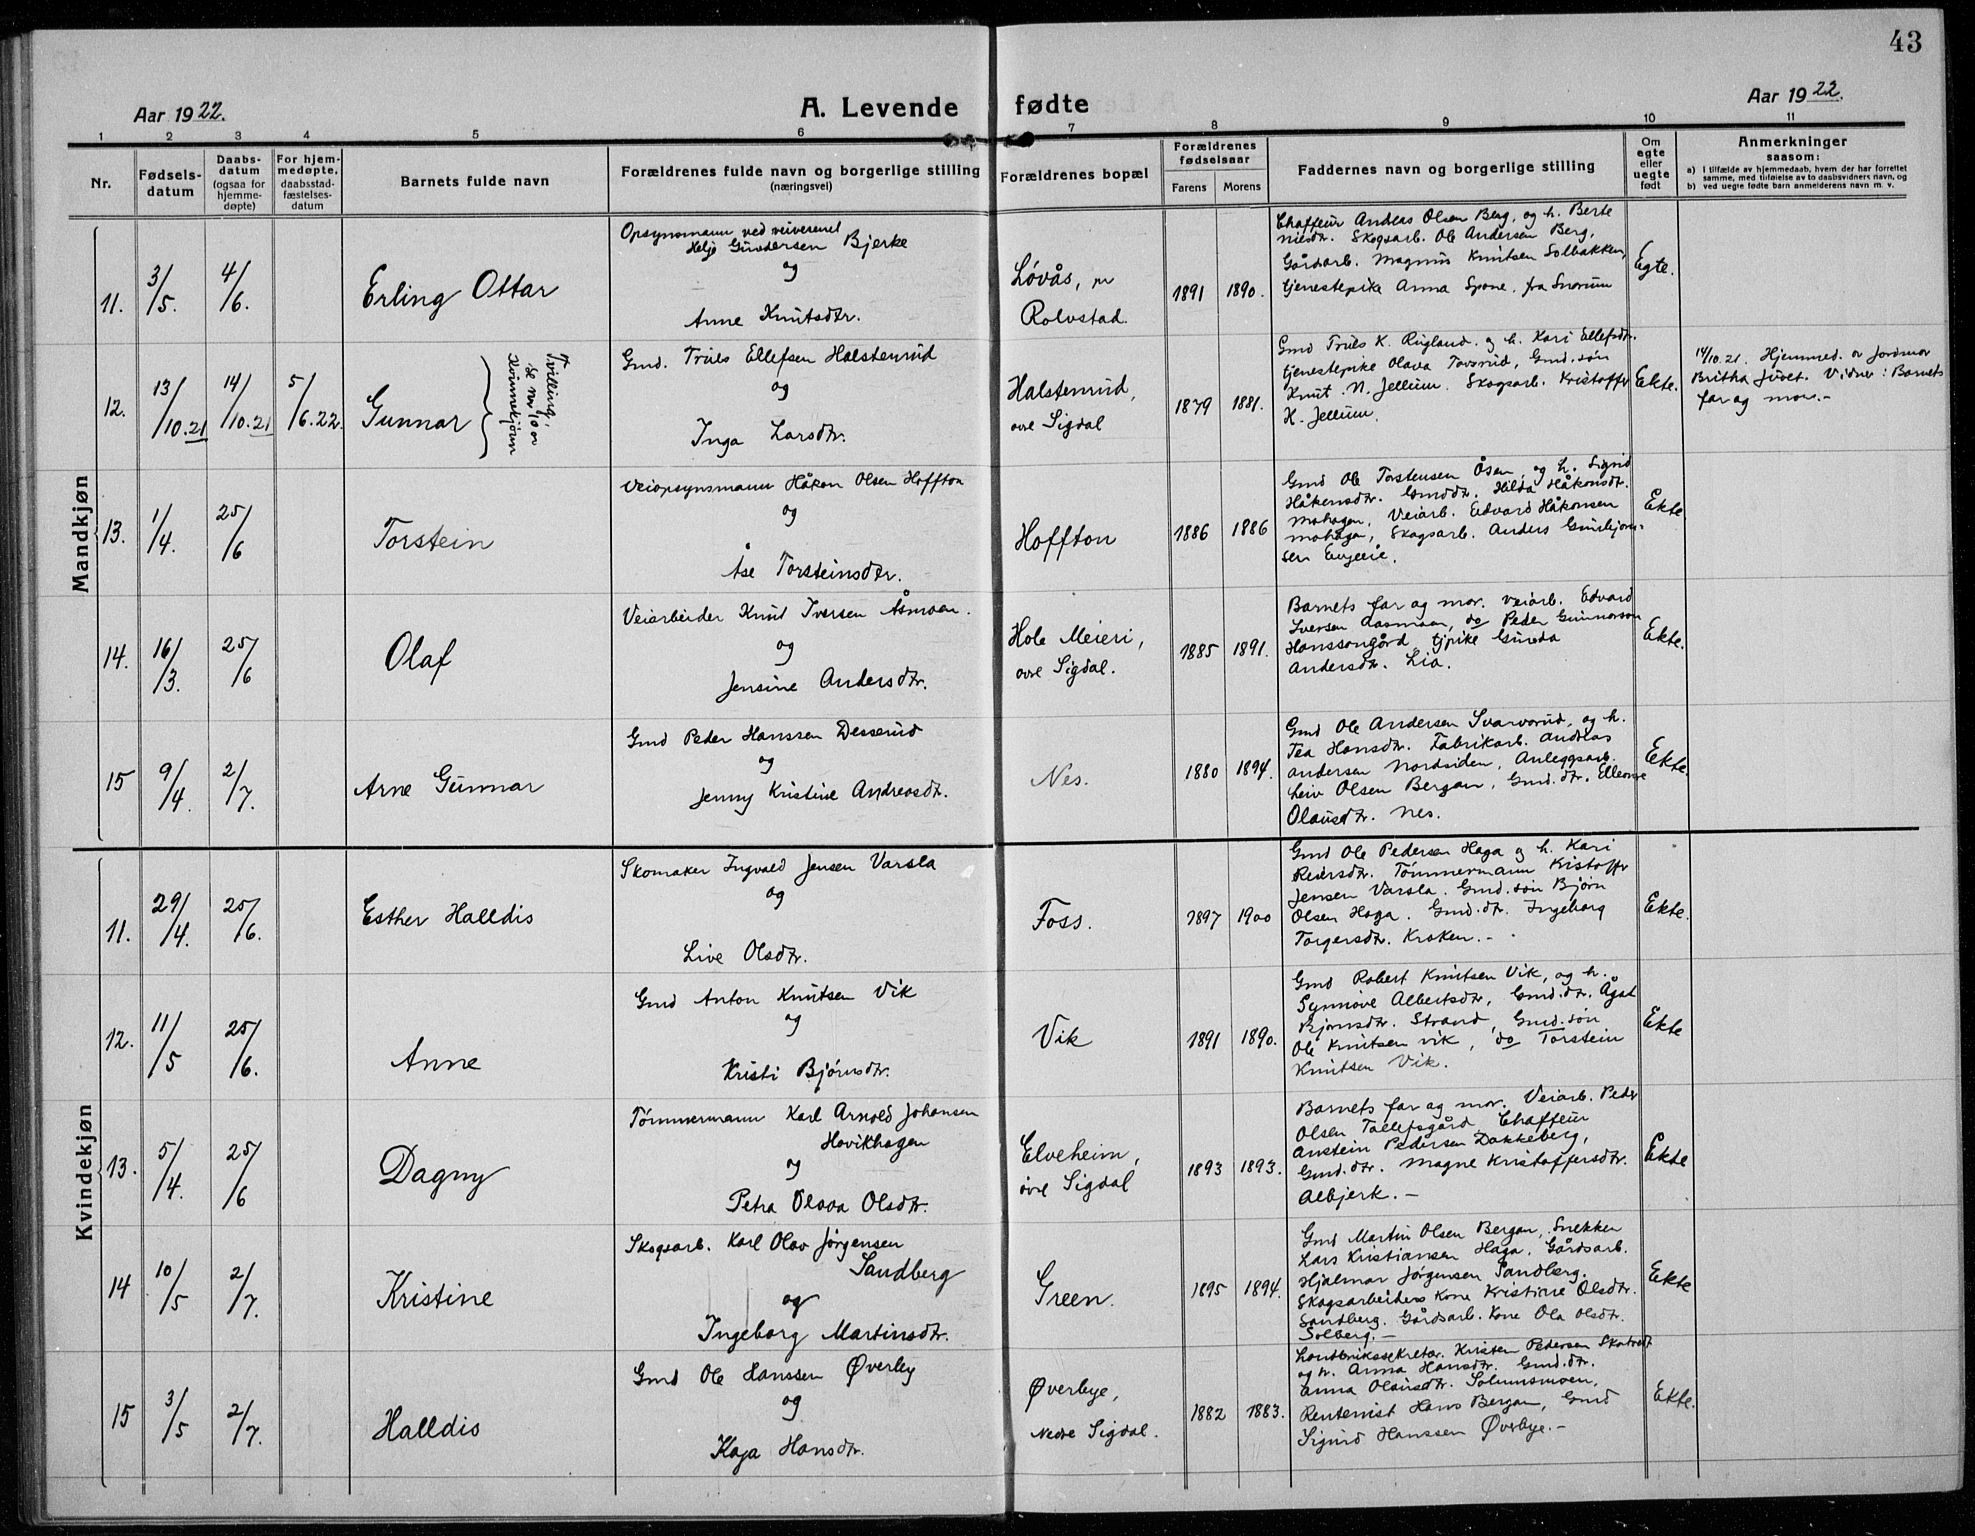 43
Aar 1922.
A. Levende fødte
Aar 1922.
1 2 3 4 5 6 7 8 9 10 11
Nr.
Fødsels-
datum
Daabs-
datum
(ogsaa for
hjemme-
døpte)
For hjem-
medøpte,
daabsstad-
fæstelses-
datum
Barnets fulde navn
Forældrenes fulde navn og borgerlige stilling
(næringsvei)
Forældrenes bopæl
Forældrenes
fødselsaar
Farens Morens
Faddernes navn og borgerlige stilling
Om
egte
eller
uegte
født
Anmerkninger
saasom:
a) I tilfælde av hjemmedaab, hvem der har forrettet
samme, med tilføielse av to daabsvidners navn, og
b) ved uegte fødte barn anmelderens navn m. v.
Mandkjøn
11.
3/5.
4/6.
Erling Ottar
Opsynsmann ved veivesenet
Helje Gundersen Bjerke
og
Anne Knutsdtr.
Løvås, pr
Rolvstad.
1891 1890.
Chaffeur Andreas Olsen Berg, og h. Berte
Nilsdtr. Skogsarb. Ole Andersen Berg,
Gårdsarb. Magnus Knutsen Solbakken,
tjenestepike Anna Spone, fra Snarum
Egte.
12.
13/10.21
14/10.21
5/6.22.
Gunnar
Tvilling,
se Nr 10 av
Kvinnekjønn
Gmd. Truls Ellefsen Halstenrud
og
Inga Larsdtr.
Halstenrud,
øvre Sigdal
1879 1881.
Gmd Truls K. Rugland. og h. Kari Ellefsdtr.
tjenestepike Olava Tovsrud, Gmd.søn
Knut N. Jellum. Skogsarb. Kristoffer
K. Jellum.
Ekte.
14/10.21. Hjemmed. av Jordmor
Britha Juvet. Vidner: Barnets
far og mor.-
13.
1/4.
25/6
Torstein
Veiopsynsmann Håkon Olsen Hoffton
og
Åse Torsteinsdtr.
Hoffton
1886 1886
Gmd Ole Torstensen Åsen, og h. Sigrid
Håkensdtr. Gmddtr. Hilda Håkonsdt.
Mohagen, Veiarb. Edvard Håkonsen
Mohagen, Skogsarb. Anders
Ekte
14.
16/3.
25/6
Olaf
Veiarbeider Knut Iversen Åsmoen.
og
Jensine Andersdtr.
Hole Meieri,
øvre Sigdal.
1885 1891.
Barnets far og mor. Veiarb. Edvard
Iversen Aasmoen, do Peder Gunnarson
Hanssongård, tjpike Gunda
Andersdtr. Lia.
Ekte.
15
9/4.
2/7.
Arne Gunnar
Gmd Peder Hanssen Desserud
og
Jenny Kristine Andreasdtr.
Nes.
1880 1894.
Gmd Ole Andersen Svarvorud, og h.
Tea Hansdtr. Fabrikarb. Andreas
Andersen Nordsiden, Anleggsarb.
Leiv Olsen Bergan, Gmd.dtr. Ellen
Olausdtr. Nes.
Ekte.
Kvindekjøn
11.
29/4.
25/6.
Esther Halldis
Skomaker Ingvald Jensen Varsla
og
Live Olsdtr.
Foss.
1897 1900
Gmd Ole Pedersen Haga og h. Kari
Pedersdtr. Tømmermann Kristoffer
Jensen Varsla. Gmd.søn Bjørn
Olsen Haga. Gmd.dtr. Ingeborg
Torgersdtr. Kroken.-
Ekte.
12.
11/5
25/6.
Anne
Gmd Anton Knutsen Vik
og
Kristi Bjørnsdtr.
Vik
1891 1890.
Gmd Robert Knutsen Vik, og h.
Synnøve Albertsdtr, Gmd.dtr. Ågot
Bjørnsdtr. Strand, Gmd.søn
Ole Knutsen Vik, do Torstein
Knutsen Vik.
Ekte
13.
5/4.
25/6
Dagny
Tømmermann Karl Arnold Johansen
Hovikhagen
og
Petra Olava Olsdtr.
Elveheim,
øvre Sigdal
1893 1893.
Barnets far og mor. Veiarb. Peder
Olsen Tollefsgård, Chaffeur
Anstein Pedersen Dokkeberg,
Gmd.dtr. Magne Kristoffersdtr.
Albjerk.-
Ekte
14
10/5
2/7.
Kristine
Skogsarb. Karl Olav Jørgensen
Sandberg
og
Ingeborg Martinsdtr.
Green.
1895 1894.
Gmd Martin Olsen Bergan, Snekker
Lars Kristiansen Haga, Gårdsarb.
Hjalmar Jørgensen Sandberg.
Skogsarbeiders Kone Kristine Olsdtr.
Sandberg. Gårdsarb. Kone Ola Olsdtr.
Solberg.-
Ekte
15
3/5
2/7.
Halldis
Gmd Ole Hanssen Øverby
og
Kaja Hansdtr.
Øverbye,
Nedre Sigdal.
1882 1883.
Landbrukssekretær. Kristen Pedersen
og h. Anna Hansdtr. Gmd.dtr.
Anna Olausdtr. Solumsmoen,
Rentenist Hans Bergan, Gmd
Sigurd Hanssen Øverbye.-
Ekte.